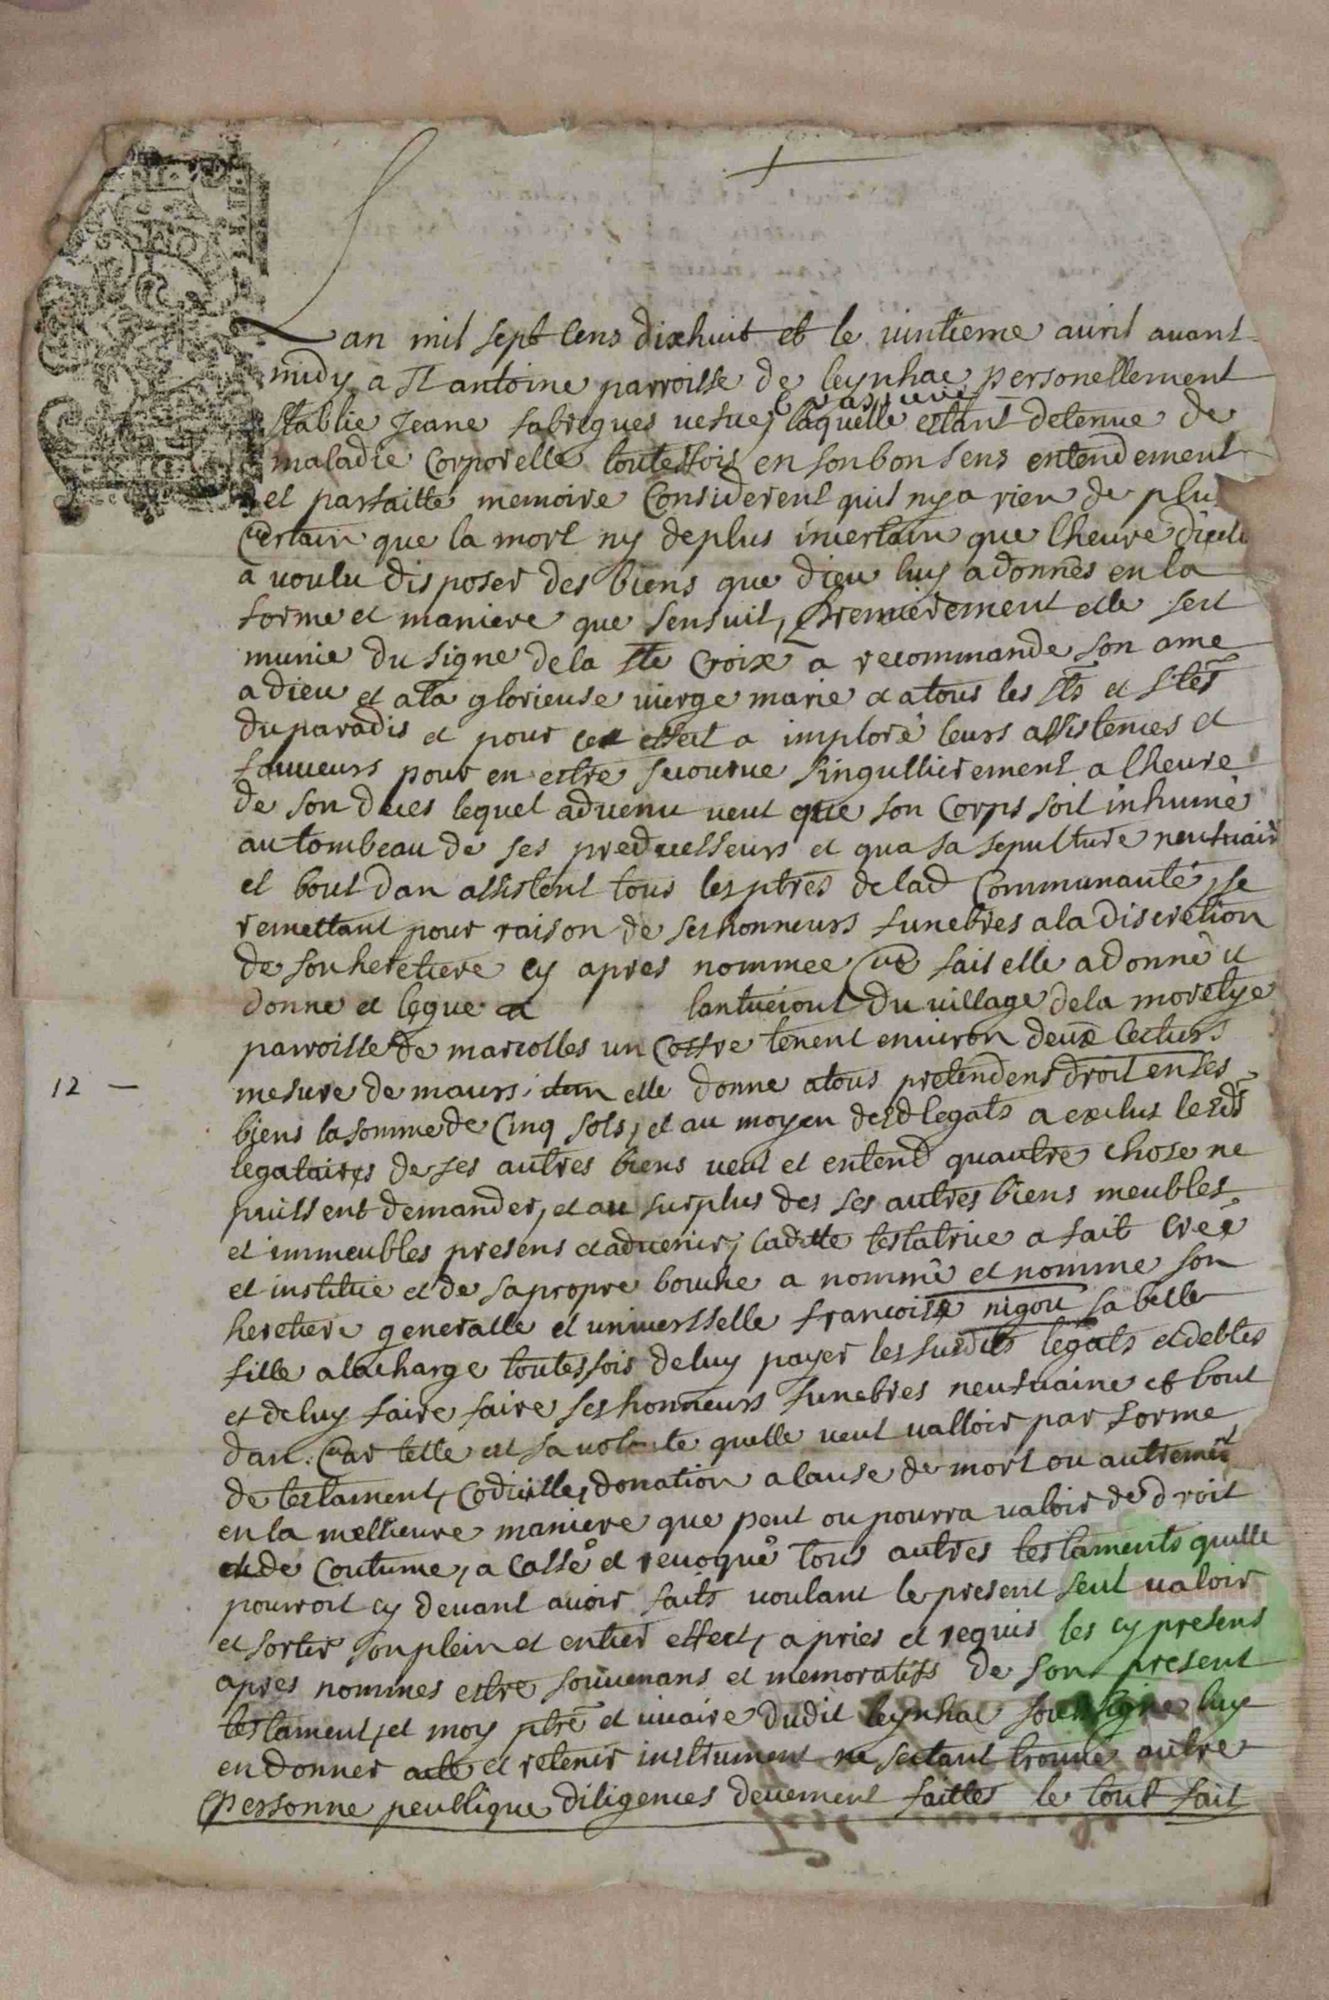 Lan mil sept cens dixhuit et le vintieme auril auant
midy a St antoine parroisse de leynhac personellement
stablie Jeane fabregues vefue laquelle estant detenue de
maladie corporelle toutesfois en son bon sens entendement
et parfaitte memoire considerent quil ny a rien de plu
certain que la mort ny de plus incertain que lheure dicell
a voulu disposer des biens que dieu luy a donnés en la
forme et maniere que sensuit, Premierement elle sest
munie du signe de la ste Croix a recommande son ame
a dieu et a la glorieuse vierge marie et a tous les sts et stes
du paradis et pour cet effect a imploré leurs assistences et
faueurs pour en estre secourue singullierement a lheure
de son deces lequel advenu veut que son corps soit inhumé
au tombeau de ses predecesseurs et qua sa sepulture neufuain
et bout dan assistent tous les ptres de lad communauté, se
remettant pour raison de ses honneurs funebres a la discretion
de son heretiere cy apres nommee ce fait elle a donné et
donne et legue a lantueiout du village de la moretye
parroisse de marcolles un coffre tenent enuiron deux cectiers
12 —
mesure de maurs, item elle donne a tous pretendens droit en ses
biens la somme de cinq sols, et au moyen desd legats a exclus lesds
legataires de ses autres biens veut et entend quautre chose ne
puissent demander, et au surplus des ses autres biens meubles
et immeubles presens et aduenir, ladite testatrice a fait creé
et institué et de sa propre bouche a nommé et nomme son
heretiere generalle et universselle francoise nigou sa belle
fille a la charge toutesfois de luy payer les susdits legats et debtes
et de luy faire faire ses honneurs funebres neufuaine et bout
dan. Car telle est sa volonte quelle veut valloir par forme
de testament, codicille, donation a cause de mort ou autrement
en la mellieure maniere que peut ou pourra valoir de droit
et de coutume, a cassé et reuoqué tous autres testaments quelle
pourroit cy deuant auoir faits voulant le present seul valoir
et sortir son plein et entier effect, a pries et requis les cy presens
apres nommes estre souuenans et memoratifs de son present
testament, et moy ptre et vicaire dudit leynhac soussigne luy
en donner acte et retenir instrument ne sestant trouué autre
personne peublique diligences deuement faittes le tout fait